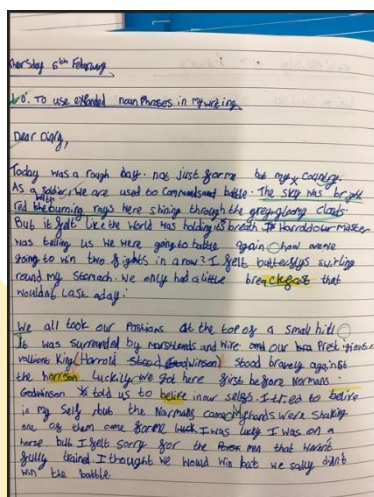 Thursday 6th February
L.O. To use expanded noun Phrases in my writing
Dear Diary,
Today was a rough day. not just for me but my country.
As a soldier, we are used to commands and battle. The sky was bright
red the burning rays were shining through the grey gloomy clouds.
But it felt like the world was holding its breath. Harrold our master
was telling us we were going to battle again how were
going to win two fights in a row? I felt butterflys swirling
round my stomach. we only had a little breackfast that
wouldnt last a day.
We all took our Postions at the top of a small hill
It was surrounded by marshlands and wire and our bra Prestigious
King (Harrold Godwinson) stood bravely against
the luckily we got here first before Normans.
Godwinson told us to belire in our selfs. I tried to belire
in my self but the Normans came my hands were shaking
one of them came for me luck I was lucky I was on a
horse but I felt sorry for the men that weren't
fully trained I thought we would win but we sadly didn't
win the battle